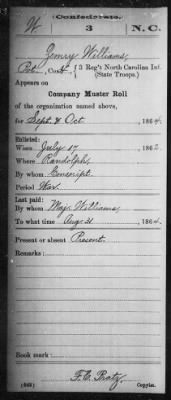 Confederate.
W 3 N.C.
Williams
Co. 3 Reg't North Carolina Inf.
(State Troops.)
Appears on
Company Muster Roll
of the organization named above,
for Sept & Oct, 1864.
Enlisted:
When July 17, 1862.
Where Randolph,
By whom Conscript
Period War.
Last paid:
By whom Maj. Williams,
To what time Aug 31, 1864.
Present or absent Present.
Remarks:
Book mark:
Copyist.